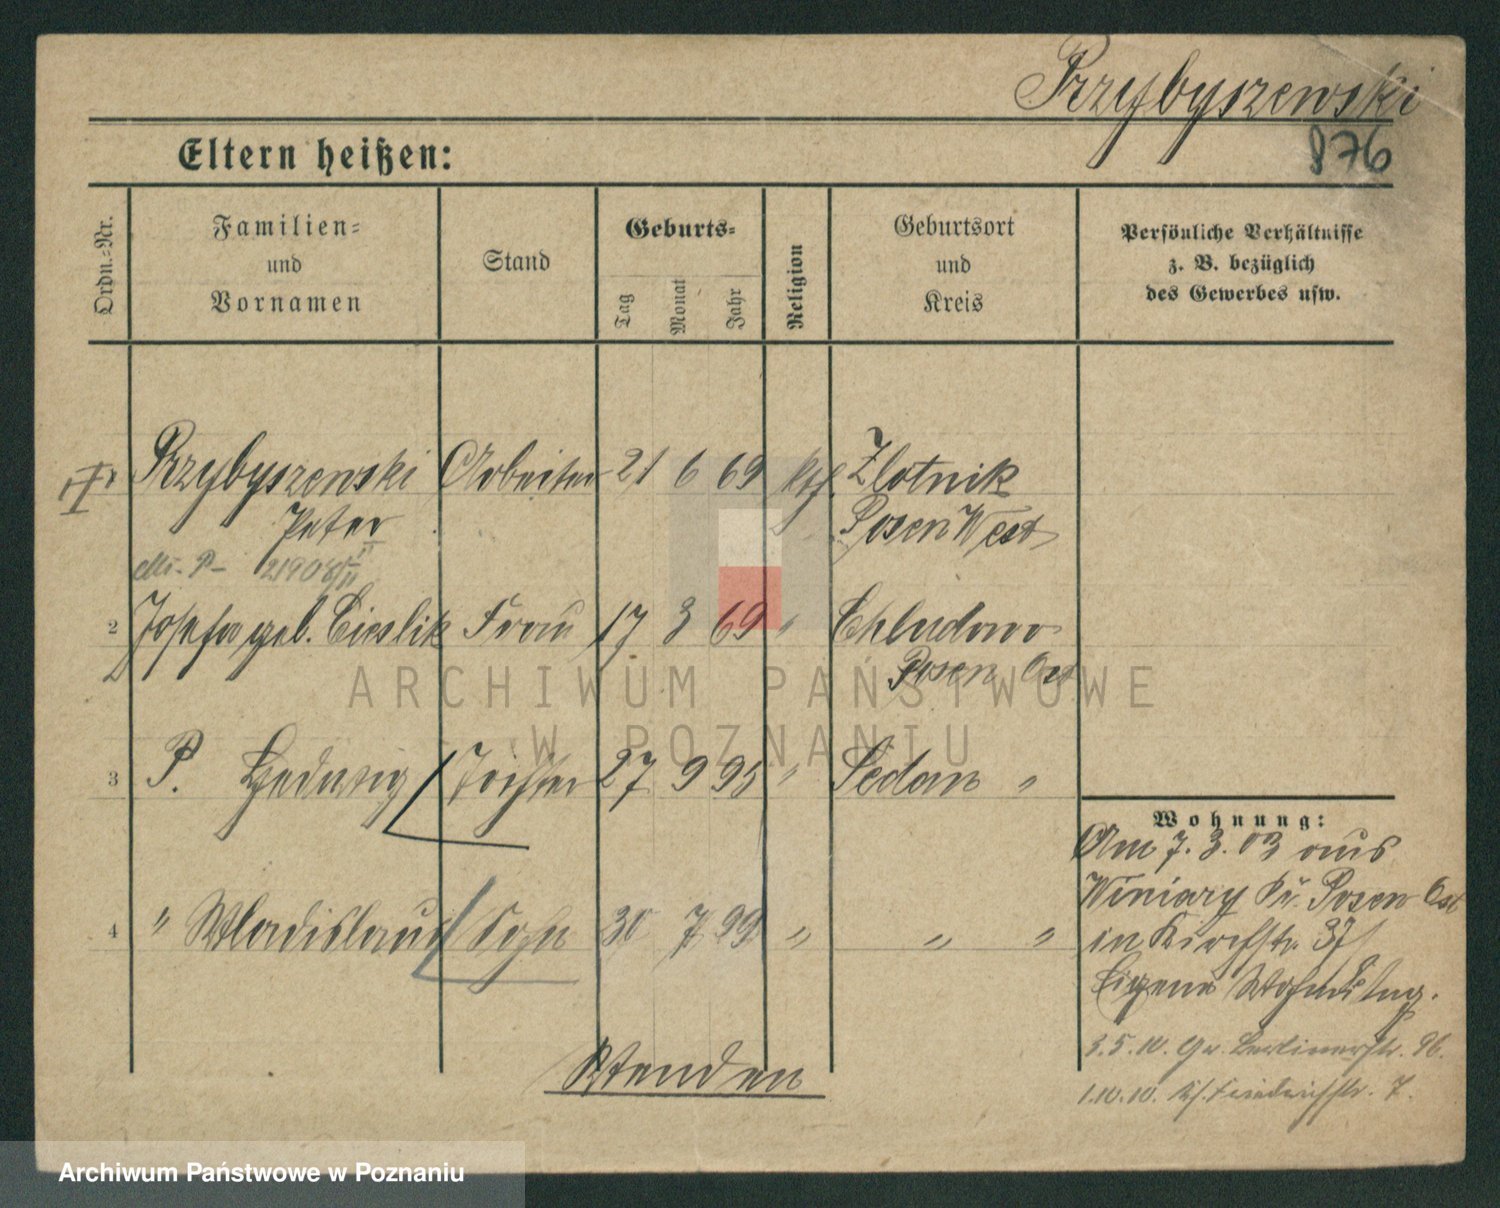 Przybyszewski
876
Eltern heißen:
Ordn.-Nr.
Familien-
und
Vornamen
Stand
Geburts-
Tag
Monat
Jahr
Religion
Geburtsort
und
Kreis
Persönliche Verhältnisse
z. B. bezüglich
des Gewerbes usw.
Przybyszewski Arbeiter 21 6 69 Kth. Zlotnik
Peter Posen West
2 Josefa geb. Cieslik Frau 17 3 69 " Chludowo
Posen Ost
ARCHIWUM PAŃSTWOWE
W POZNANIU
3 P. Hedwig Tochter 27 9 95 " Sedan "
4 " Wladislaus Sohn 30 7 99 " " "
Wohnung:
Am 7.3.03 aus
Winiary Kr. Posen Ost
in Kirchstr. 37
Eigene Wohnung.
3.5.10. Gr. Berlinerstr. 96.
1.10.10. Kl. Friedrichstr. 7.
Wenden
Archiwum Państwowe w Poznaniu